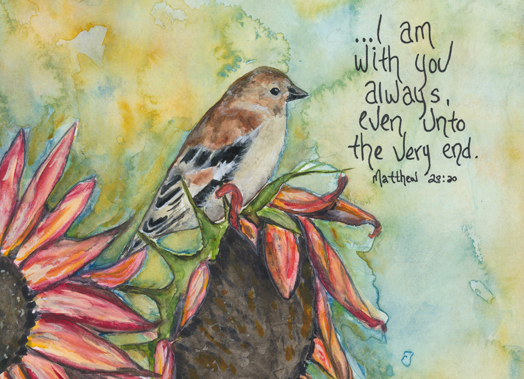 ...I am
with you
always,
even unto
the very end.
Matthew 28:20